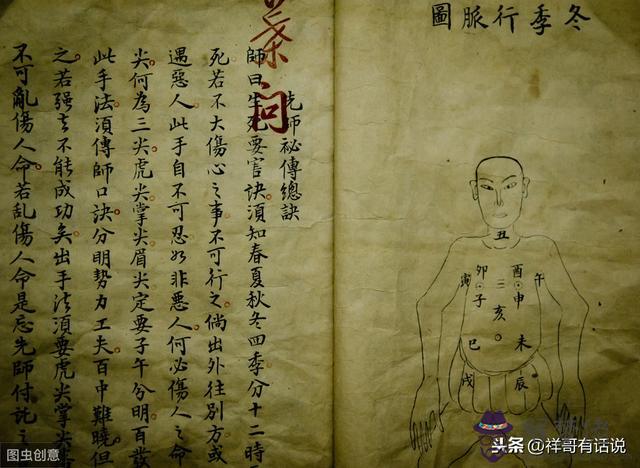 冬季行脈圖
丑
卯 酉
寅 午
子 三 申
亥
巳 未
戌 辰
葉問
先師祕傳總訣
師曰生死要害訣須知春夏秋冬四季分十二時
死若不大傷心之事不可行之倘出外往別方或
遇惡人此手自不可忍如非惡人何必傷人之命
尖何為三尖虎尖掌尖眉尖定要子午分明百發
此手法須傳師口訣分明勢力工夫百中難曉但
之若强去不能成功矣出手法須要虎尖掌尖
不可亂傷人命若乱傷人命是忘先師付託之
图虫创意
头条 @祥哥有话说